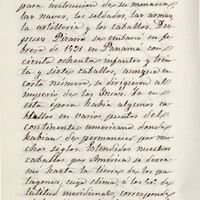 para instruccion de su monarca
las naves, los soldados, las armas,
la artilleria y los caballos. Des-
pues Pizarro se embarcó en fe-
brero de 1531 en Panamá con
ciento ochenta infantes y trein-
ta y siete caballos, aunque en
corto número, se dirigieron al
Imperio de los Incas. Ya en
esta época habia algunos ca-
ballos en varios puntos del
continente americano donde
habian de permanecer por mu-
chos siglos. Estendidos nuestros
caballos por América se derra-
man hasta la tierra de los pa-
tagones, cuyo clima, á los 50° de
latitud meridional, corresponde